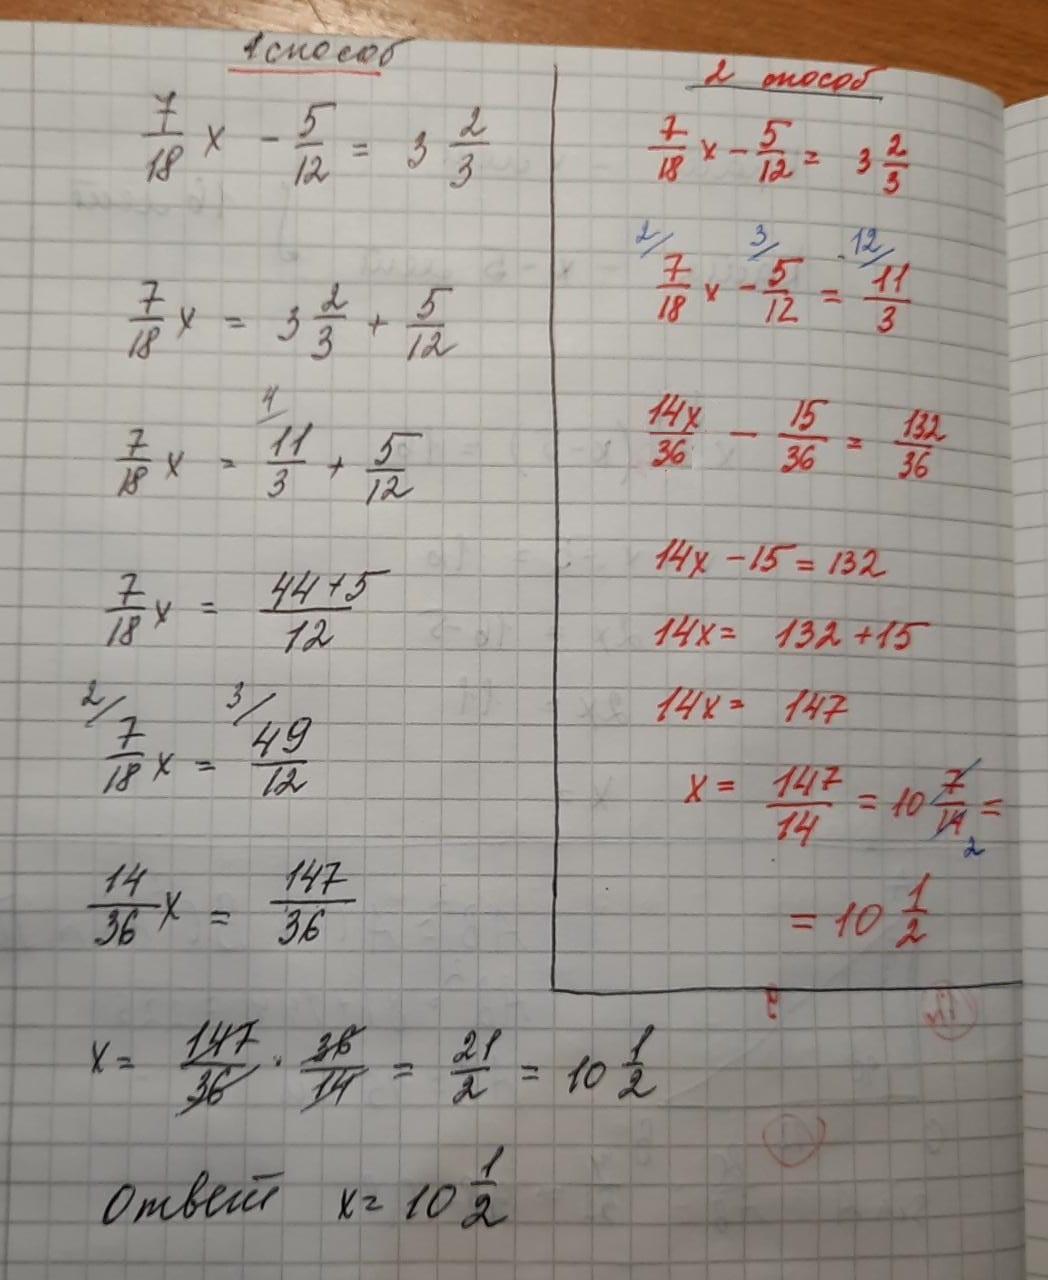 1 способ
7/18 x - 5/12 = 3 2/3
7/18 x = 3 2/3 + 5/12
4/
7/18 x = 11/3 + 5/12
7/18 x = 44+5/12
2/ 3/
7/18 x = 49/12
14/36 x = 147/36
x = 147/36 · 36/14 = 21/2 = 10 1/2
Ответ x = 10 1/2
2 способ
7/18 x - 5/12 = 3 2/3
2/ 3/ 12/
7/18 x - 5/12 = 11/3
14x/36 - 15/36 = 132/36
14x - 15 = 132
14x = 132 + 15
14x = 147
x = 147/14 = 10 7/14 =
2
= 10 1/2